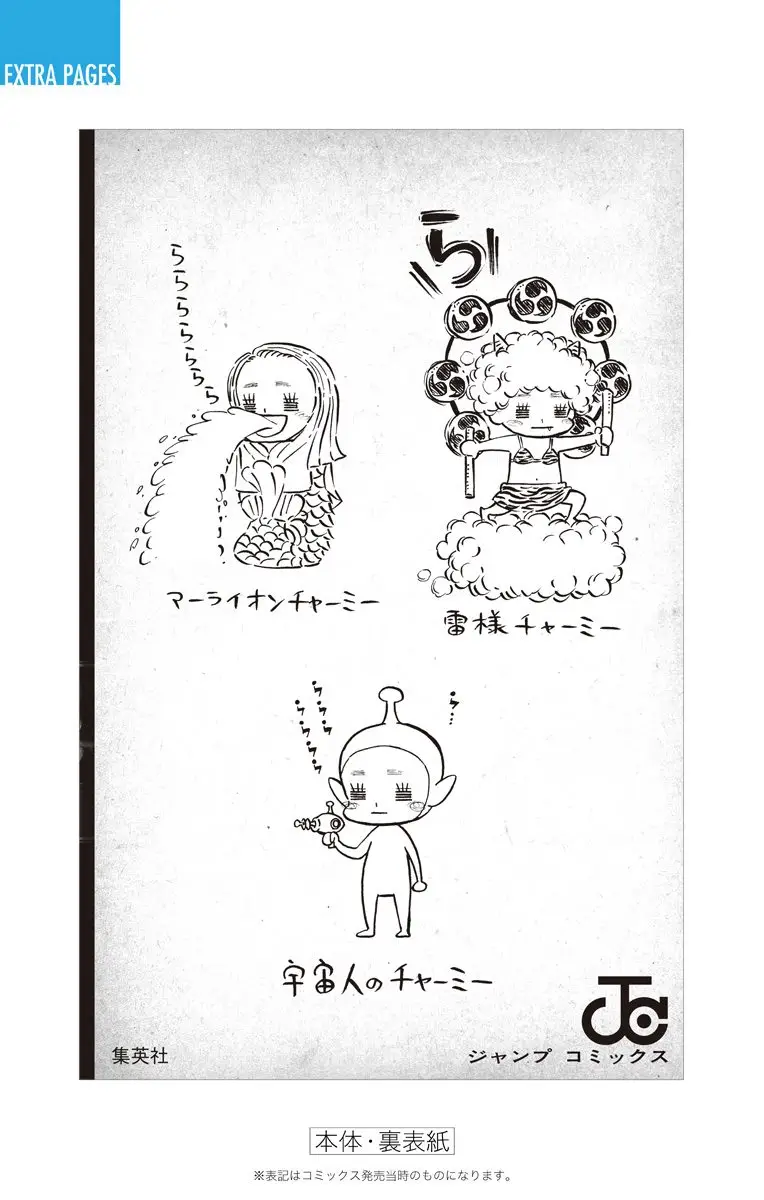 EXTRA PAGES
ららららららら
ら
マーライオンチャーミー
雷様チャーミー
ららら
らららら
ら…
宇宙人のチャーミー
集英社
ジャンプ コミックス
本体・裏表紙
※表記はコミックス発売当時のものになります。